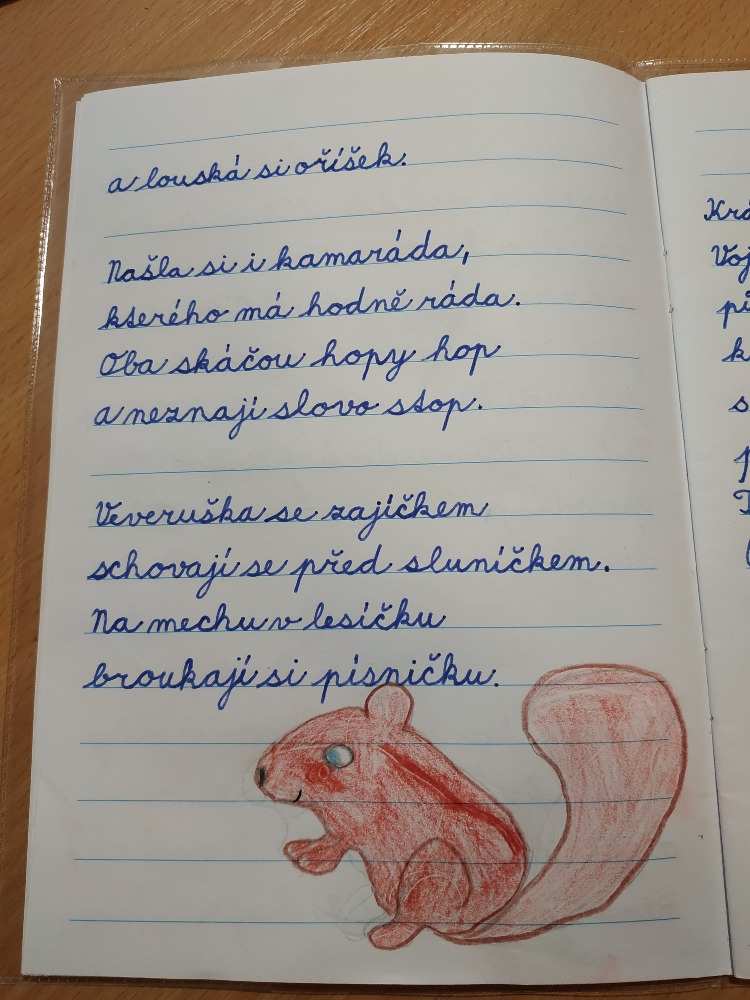 a louská si oříšek.
Našla si i kamaráda,
kterého má hodně ráda.
Oba skáčou hopy hop
a neznají slovo stop.
Veveruška se zajíčkem
schovají se před sluníčkem.
Na mechu v lesíčku
broukají si písničku.